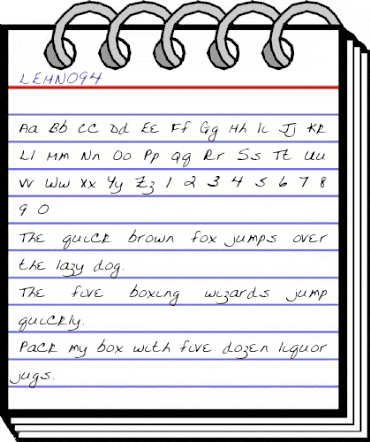 LEHN094
Aa Bb Cc Dd Ee Ff Gg Hh Ii Jj Kk
Ll Mm Nn Oo Pp Qq Rr Ss Tt Uu
Vv Ww Xx Yy Zz 1 2 3 4 5 6 7 8
9 0
The quick brown fox jumps over
the lazy dog.
The five boxing wizards jump
quickly.
Pack my box with five dozen liquor
jugs.